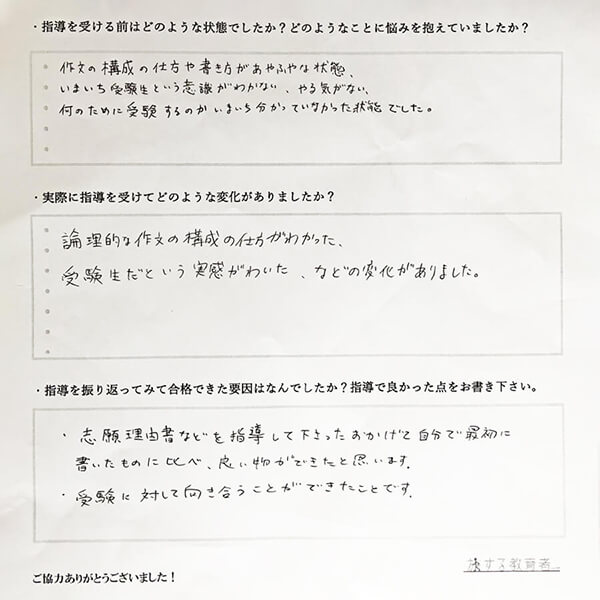 ・指導を受ける前はどのような状態でしたか？どのようなことに悩みを抱えていましたか？
作文の構成の仕方や書き方があやふやな状態、
いまいち受験生という意識がわかない、やる気がない、
何のために受験するのかいまいち分かっていなかった状態でした。
・実際に指導を受けてどのような変化がありましたか？
論理的な作文の構成の仕方がわかった、
受験生だという実感がわいた、などの変化がありました。
・指導を振り返ってみて合格できた要因はなんでしたか？指導で良かった点をお書き下さい。
・志願理由書などを指導して下さったおかげで自分で最初に
書いたものに比べ、良い物ができたと思います。
・受験に対して向き合うことができたことです。
ご協力ありがとうございました！
旅する教育者